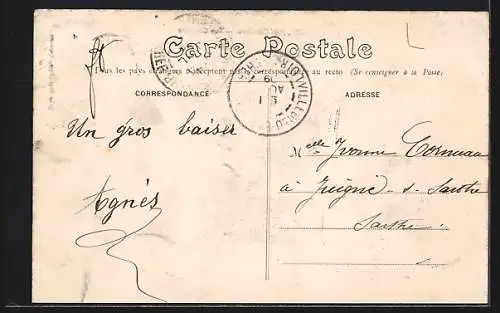 Carte Postale
Tous les pays étrangers n'acceptent pas la correspondance au recto (Se renseigner à la Poste).
CORRESPONDANCE
ADRESSE
VILLEDIEU
Un gros baiser
Agnés
Melle Yvonne Cormeau
à Juigné-s-Sarthe
Sarthe